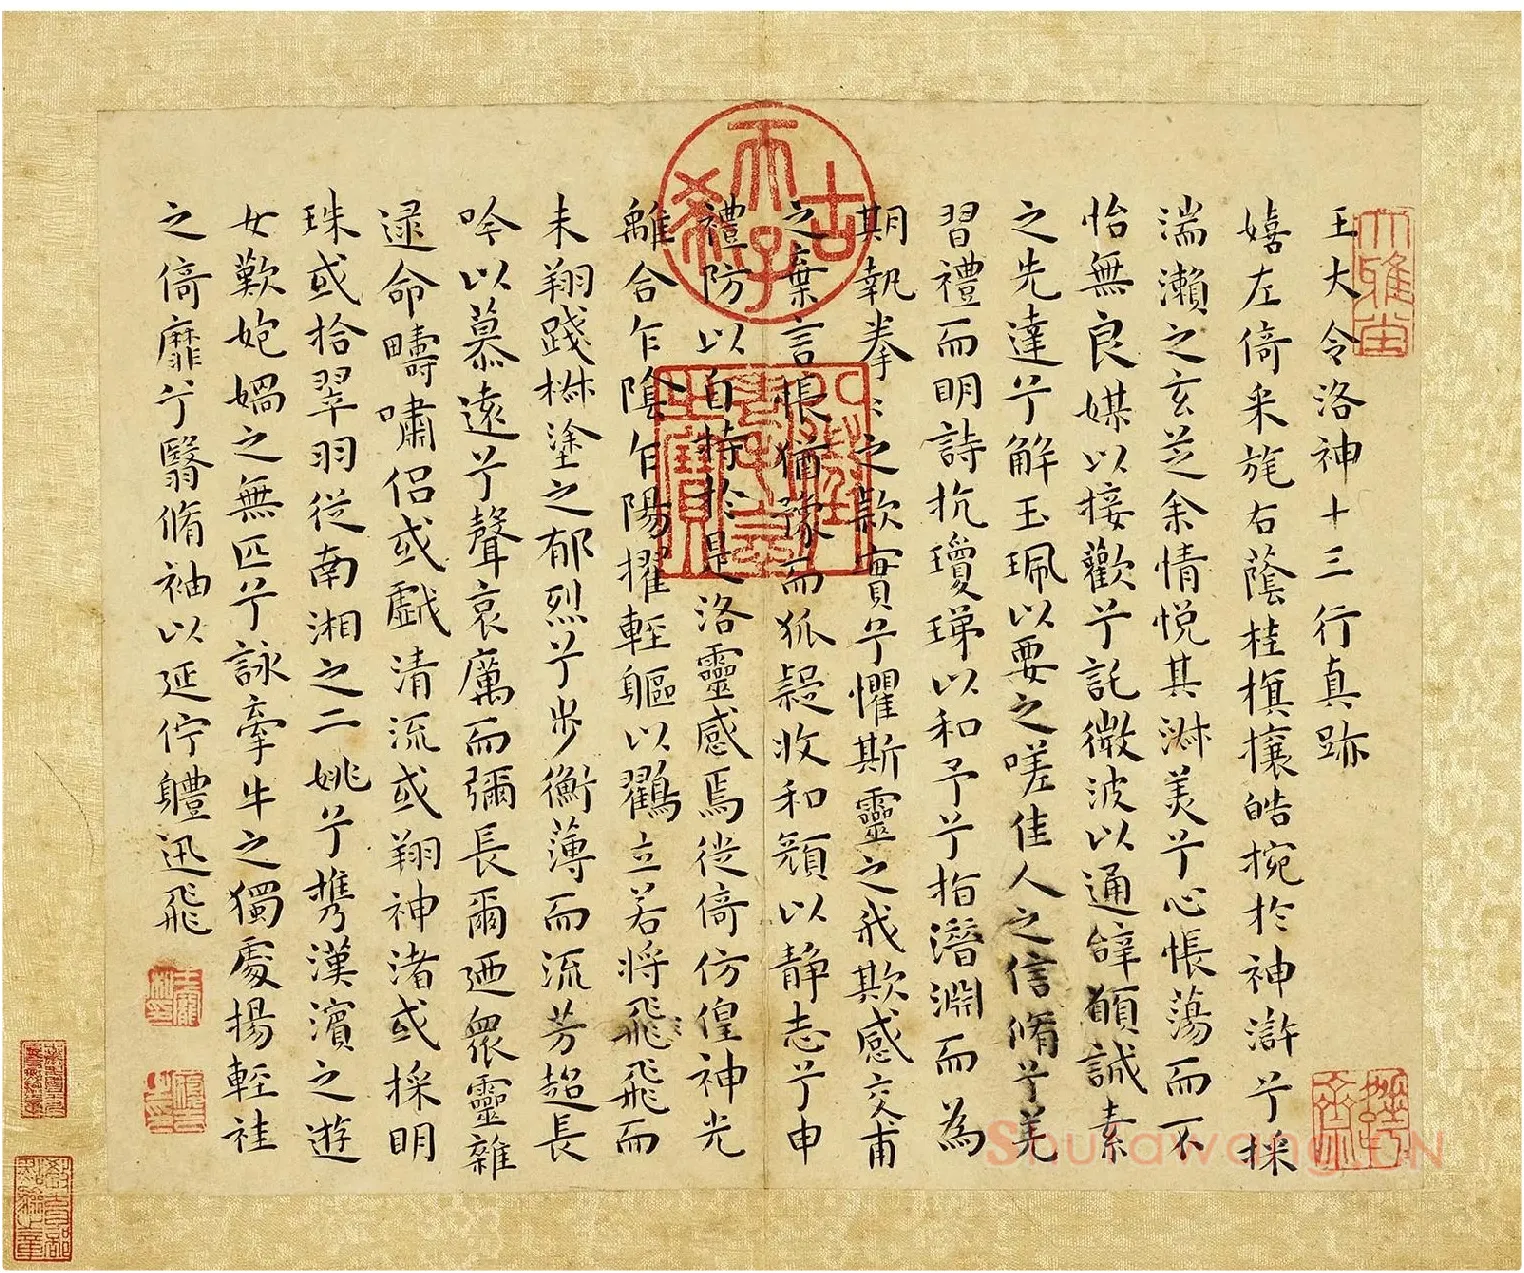 王大令洛神十三行真跡
嬉左倚采旄右蔭桂旗攘皓捥於神滸兮採
湍瀨之玄芝余情悅其淋美兮心悵蕩而不
怡無良媒以接歡兮託微波以通辝願誠素
之先達兮解玉珮以要之嗟佳人之信脩兮羌
習禮而明詩抗瓊珶以和予兮指潛淵而為
期執拳〻之款實兮懼斯靈之我欺感交甫
之棄言悵猶豫而狐疑收和顏以静志兮申
禮防以自持於是洛靈感焉徙倚仿偟神光
離合乍陰乍陽擢輕軀以鸖立若將飛飛而
未翔踐椒塗之郁烈兮步衡薄而流芳超長
吟以慕遠兮聲哀厲而彌長爾迺衆靈雜
逯命疇嘯侶或戲清流或翔神渚或採明
珠或拾翠羽從南湘之二姚兮携漢濱之遊
女歎匏媧之無匹兮詠牽牛之獨處揚輕袿
之倚靡兮翳脩袖以延佇軆迅飛
古希天子
八徵耄念之寶
大雅堂
Shufawang.CN